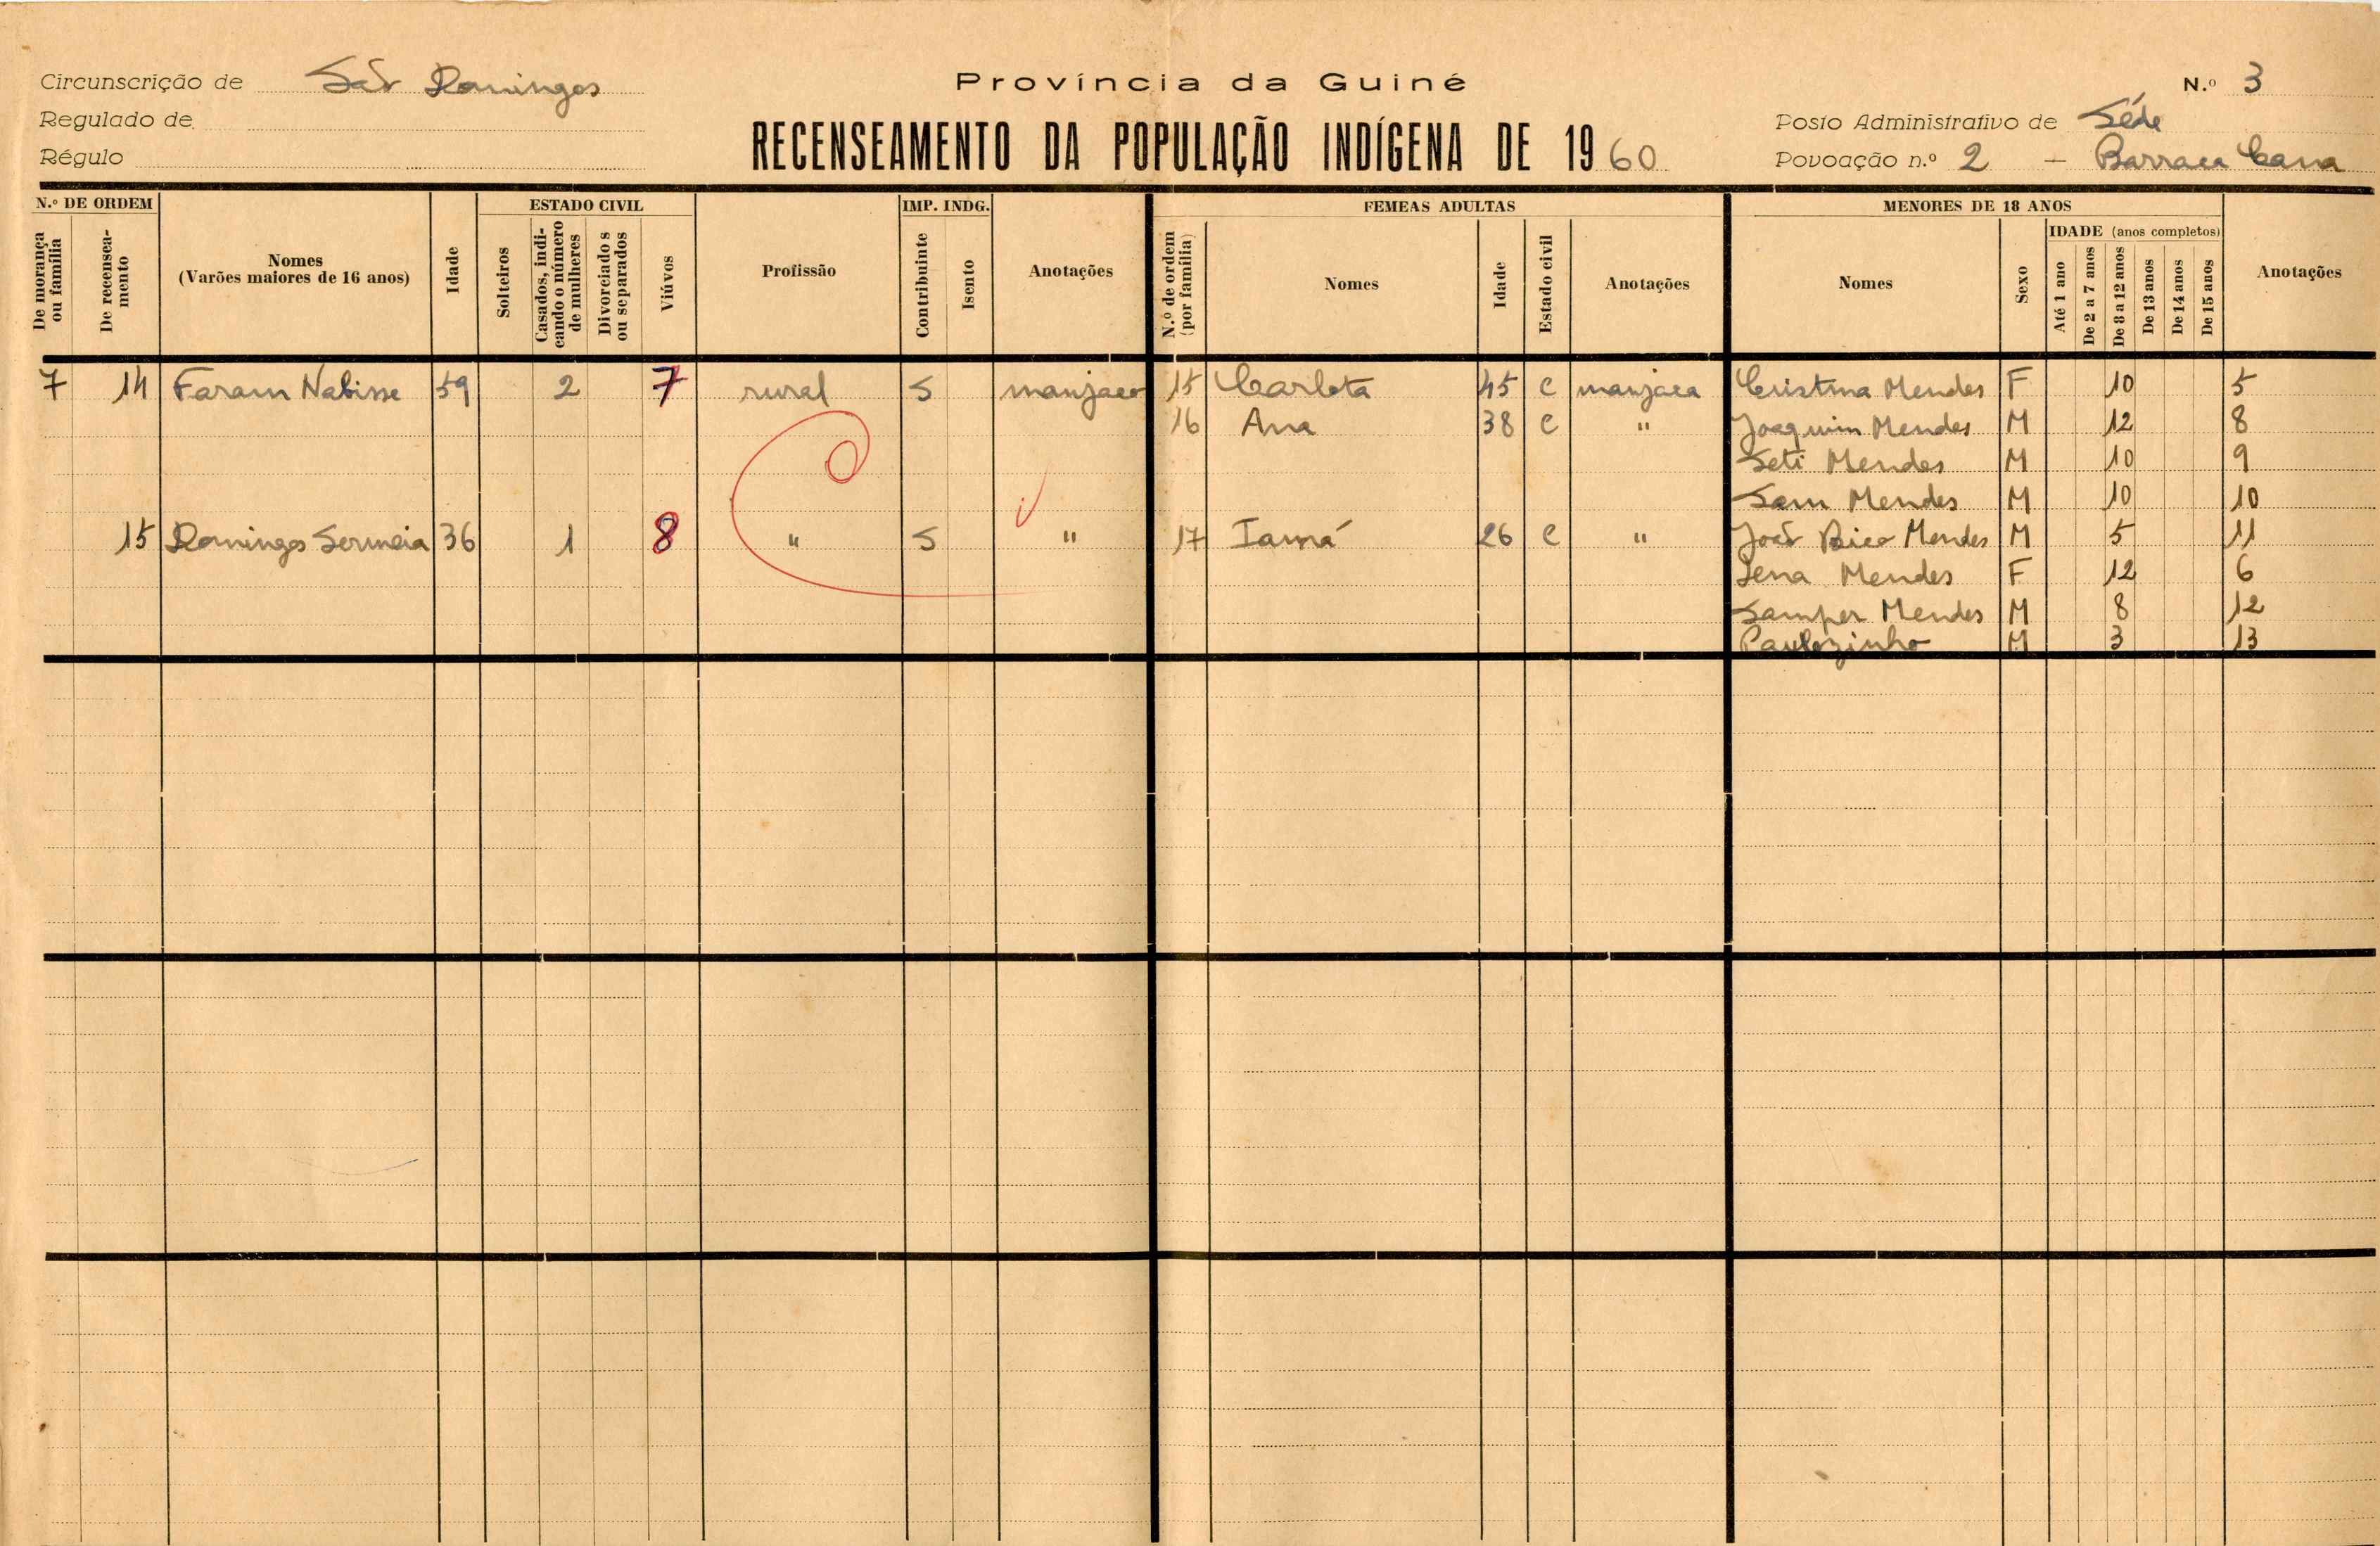 Circunscrição de São Domingos
Província da Guiné
N.º 3
Regulado de
Posto Administrativo de Séde
Régulo
RECENSEAMENTO DA POPULAÇÃO INDÍGENA DE 1960
Povoação n.º 2 – Barraca
N.º DE ORDEM
ESTADO CIVIL
IMP. INDG.
FEMEAS ADULTAS
MENORES DE 18 ANOS
De morança ou família
De recenseamento
Nomes
(Varões maiores de 16 anos)
Idade
Solteiros
Casados, indicando o número de mulheres
Divorciados ou separados
Viúvos
Profissão
Contribuinte
Isento
Anotações
N.º de ordem (por família)
Nomes
Idade
Estado civil
Anotações
Nomes
Sexo
IDADE (anos completos)
Até 1 ano
De 2 a 7 anos
De 8 a 12 anos
De 13 anos
De 14 anos
De 15 anos
Anotações
7 14 Faram Nabisse 59 2 7 rural S manjaco 15 Carlota 45 C manjaca Cristina Mendes F 10 5
16 Ana 38 C " Joaquim Mendes M 12 8
Seti Mendes M 10 9
Sam Mendes M 10 10
15 Domingos 36 1 8 " S " 17 Iamá 26 C " João Mendes M 5 11
Mendes F 12 6
Samper Mendes M 8 12
Paulozinho M 3 13